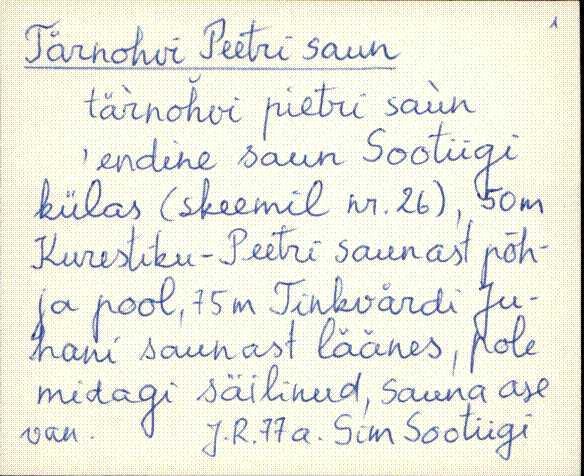 1
Tärnohvi Peetri saun
tä̀rnŏhvi pietri saùn
'endine saun Sootiigi
külas (skeemil nr. 26), 50m
Kurestiku-Peetri saunast põh-
ja pool, 75m Tinkvärdi Ju-
hani saunast läänes, pole
midagi säilinud, sauna ase
van. J.R. 77a. Sim Sootiigi